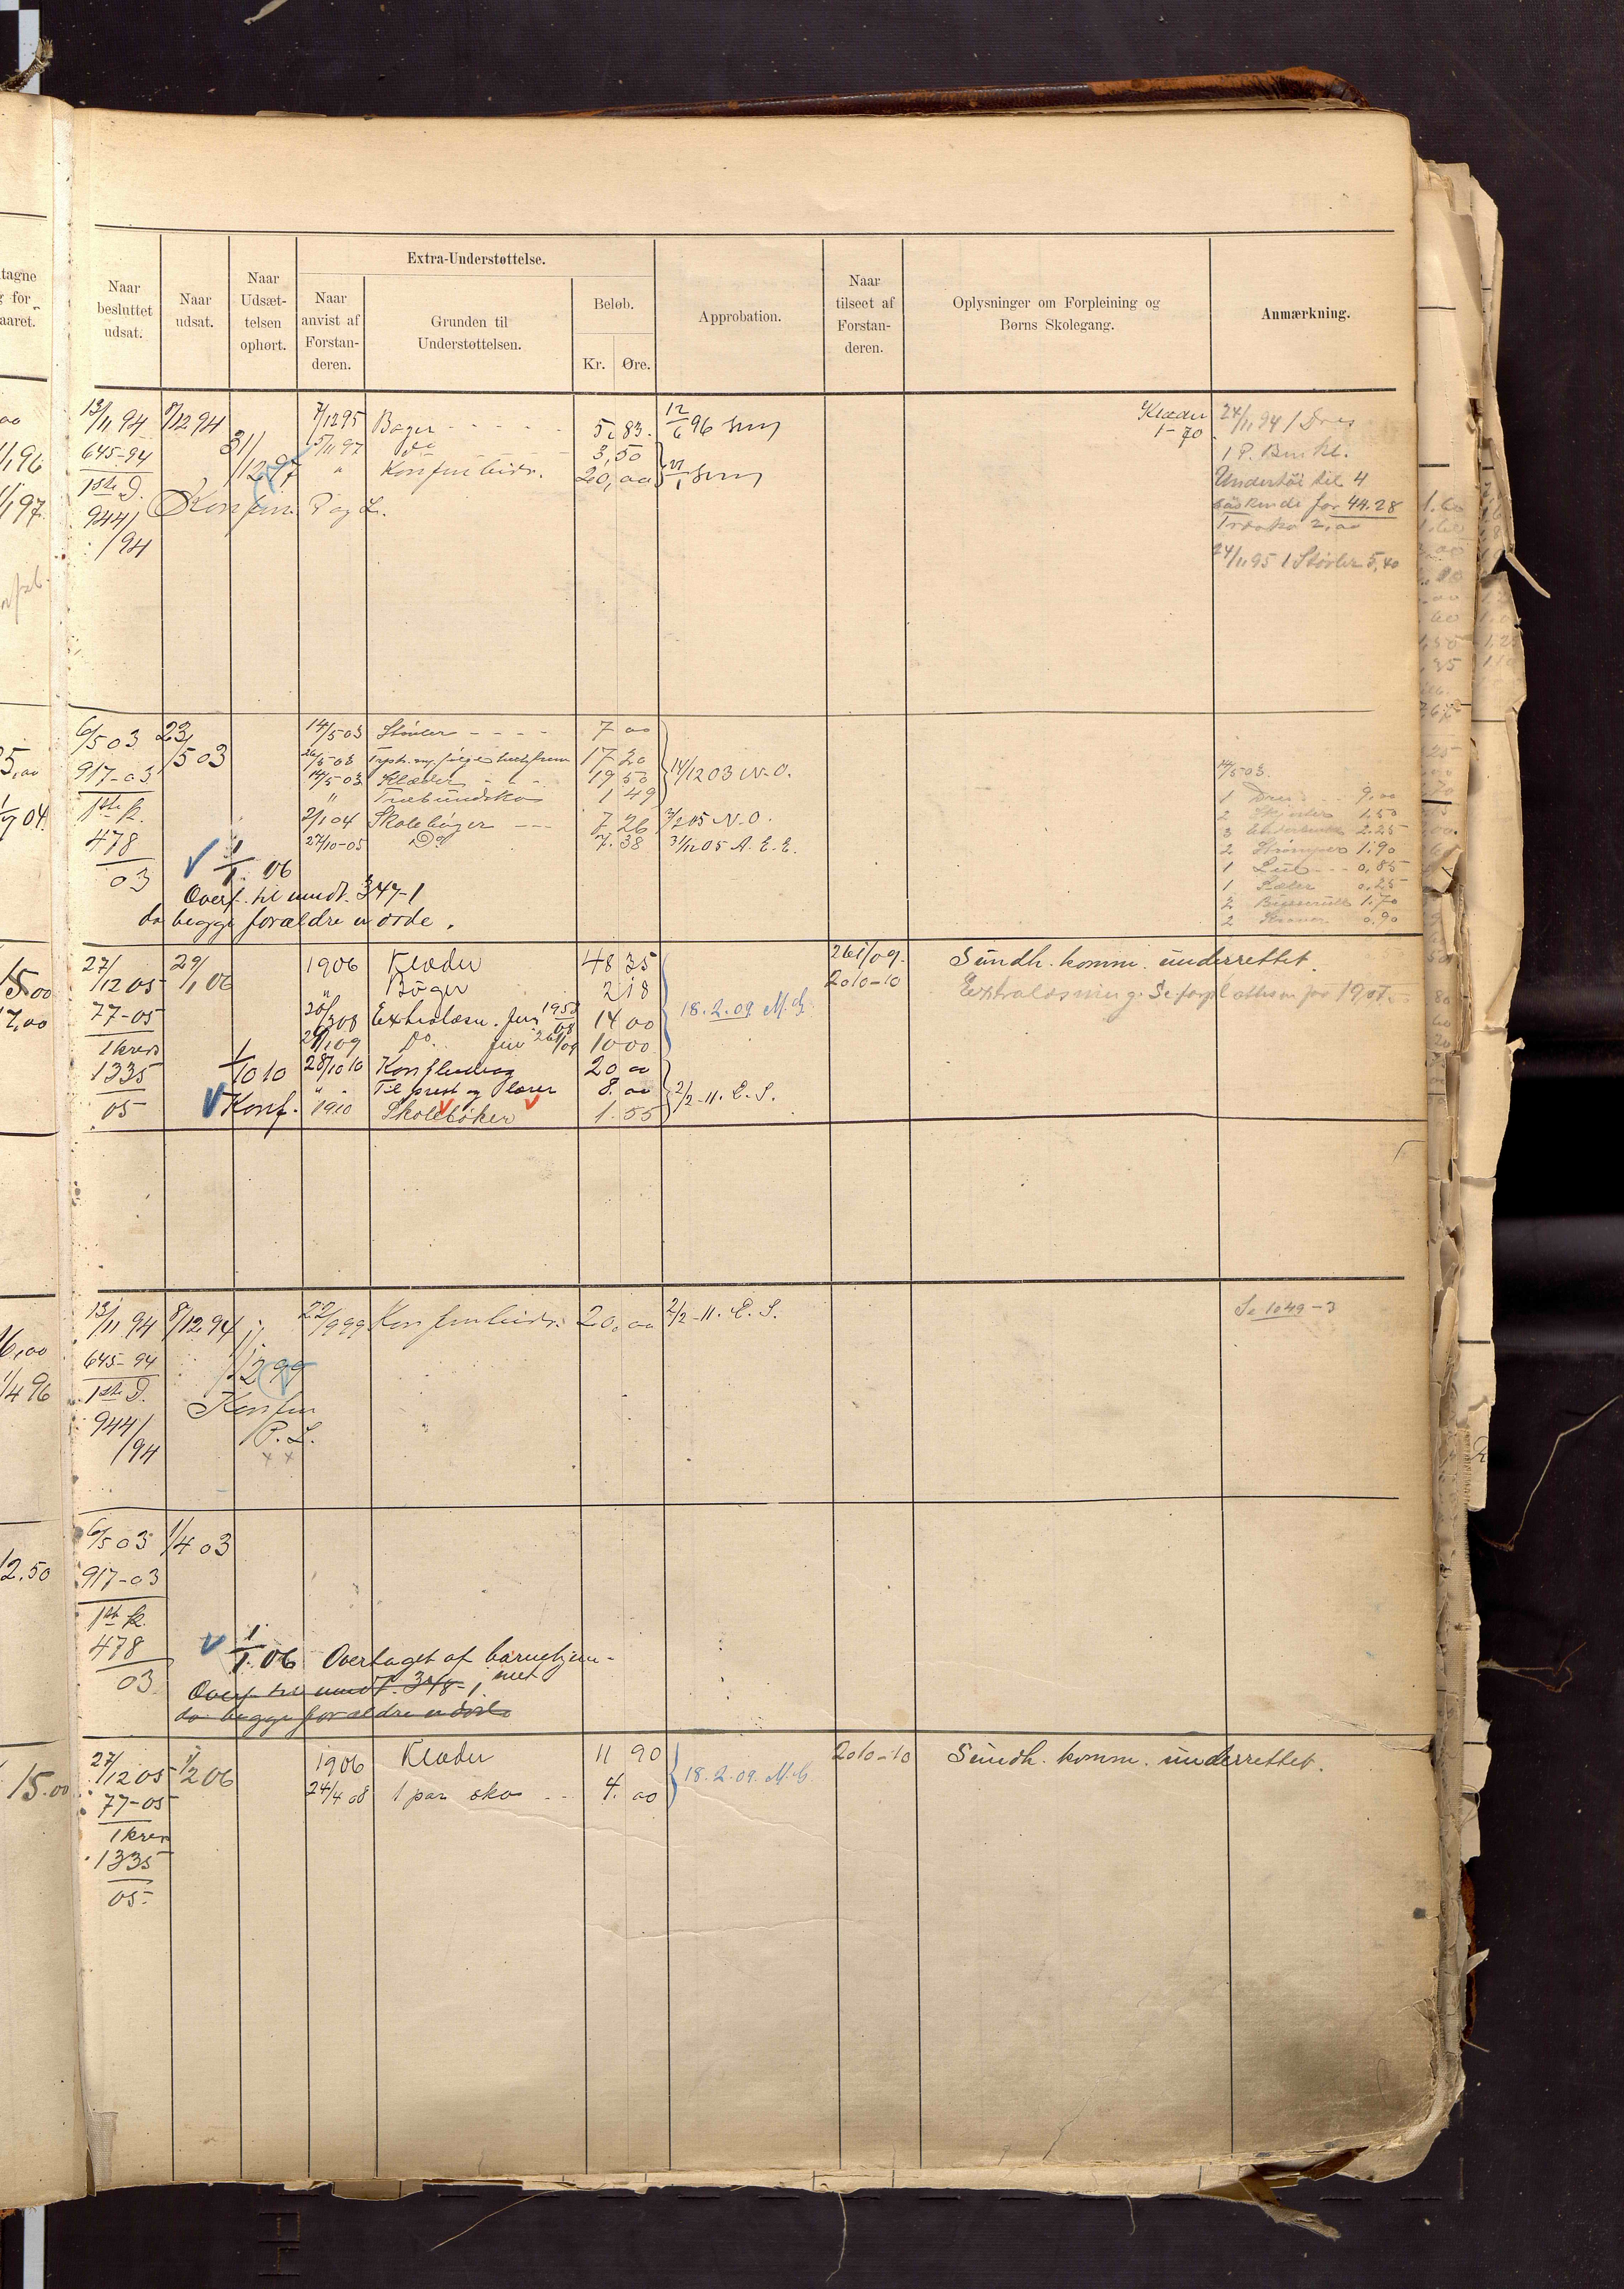 Naar besluttet udsat.
Naar udsat.
Naar Udsæt-telsen ophørt.
Extra-Understøttelse.
Naar anvist af Forstan-deren.
Grunden til Understøttelsen.
Beløb.
Kr. Øre.
Approbation.
Naar tilseet af Forstan-deren.
Oplysninger om Forpleining og Børns Skolegang.
Anmærkning.
13/11 94 8/12 94 7/12 95 Bøger 5,83. 12/6 96
645-94 31/12 97 5/11 97 do 3,50
1ste D. " Konfirm bidr. 20,00
944/94 Konfirm. P og L.
Klæder 1-70
24/11 94 1 Dres
1 P. Buxkl.
Undertøi til 4
søskende for 44.28
Træsko 2,00
24/11 95 1 Støvler 5,40
6/5 03 23/5 03 14/5 03 Støvler 7 00
917-03 26/5 03 17 20
14/5 03 Klæder 19 50 14/12 03 N.O.
1ste k. " Træbundsko 1 49
478 2/1 04 Skolebøger 7 26 2/2 05 N.O.
03 27/10-05 Do 7.38 31/12 05 A.E.E.
1/1 06
Overf. til mndt. 347-1
da begge forældre er døde.
14/5 03.
1 Dres 9,00
2 Skjorter 1.50
3 2.25
2 Strømper 1.90
1 Lue 0,85
1 Sæler 0,25
2 Busseruller 1.70
2 0.90
27/12 05 29/1 06 1906 Klæder 48 35 26 1/09. Sundh. komm. underrettet.
" Bøger 2 18 20 10-10 Extralæsning. Se
77-05 20/3 08 Extralæsn. for 14 00 18.2.09 M.G.
1 kreds 29/1 09 Do. for 10 00
1335 1/10 10 28/10 10 Konf.bidrag 20 00
" Til prest og lærer 8.00 2/2-11. E.S.
05 Konf. 1910 Skolebøker 1.55
13/11 94 8/12 94 22/9 99 Konfirm bidr. 20,00 2/2-11. E.S. Se 1049-3
645-94 1/12 99
1ste D. Konfirm
944/94 P.L.
6/5 03 1/4 03
917-03
1ste k.
478 1/1 06 Overtaget af barnehjem-
03 met
Overf. til mndt. 348-1
da begge forældre er døde
27/12 05 1/2 06 1906 Klæder 11 90 18.2.09. M.G. 20 10-10 Sundh. komm. underrettet.
77-05 24/4 08 1 par sko 4.00
1 kreds
1335
05